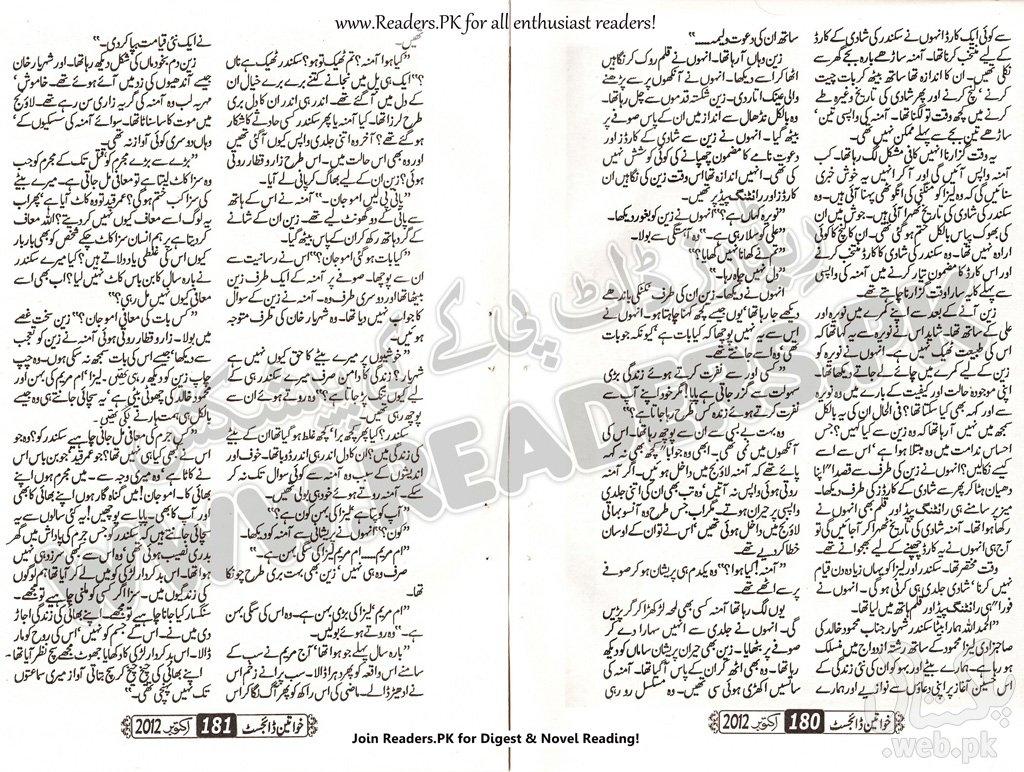 www.Readers.PK for all enthusiast readers!
سے کوئی ایک کارڈ انہوں نے سکندر کی شادی کے کارڈ
کے لیے منتخب کرنا تھا۔ آمنہ ساڑھے بارہ بجے گھر سے
نکلی تھیں۔ ان کا اندازہ تھا ساتھ بیٹھ کر بات چیت
کرنے، لنچ کرنے اور پھر شادی کی تاریخ وغیرہ طے
کرنے میں کچھ وقت تو لگنا تھا۔ آمنہ کی واپسی تین،
ساڑھے تین بجے سے پہلے ممکن نہیں تھی۔
یہ وقت گزارنا انہیں کافی مشکل لگ رہا تھا۔ کب
آمنہ واپس آئیں گی اور آ کر انہیں یہ خوش خبری
سنائیں گی کہ وہ لیزا کو منگنی کی انگوٹھی پہنا آئی ہیں۔ وہ
سکندر کی شادی کی تاریخ ٹھہرا آئی ہیں۔ جوش میں ان
کی بھوک پیاس بالکل ختم ہو گئی تھی۔ ان کا لنچ کا کوئی
ارادہ نہیں تھا۔ وہ سکندر کی شادی کا کارڈ منتخب کرنے
اور اس کارڈ کا مضمون تیار کرنے میں آمنہ کی واپسی
سے پہلے کا یہ سارا وقت گزارنا چاہتے تھے۔
زین آنے کے بعد سے اپنے کمرے میں نویرہ اور
علی کے ساتھ تھا۔ شاید اس نے نویرہ سے یہ کہا تھا کہ
اس کی طبیعت ٹھیک نہیں ہے۔ انہوں نے نویرہ کو
زین کے لیے کمرے میں چائے لے جاتے دیکھا تھا۔
اپنی موجودہ حالت اور کیفیت کے بارے میں وہ نویرہ
سے اور کہہ بھی کیا سکتا تھا؟ فی الحال ان کی یہ بالکل
سمجھ میں نہیں آ رہا تھا کہ وہ زین سے کیا کہیں؟ جس
احساس ندامت میں وہ مبتلا ہوا ہے، اس سے اسے
کیسے نکالیں؟ انہوں نے زین کی طرف سے قصداً اپنا
دھیان ہٹا کر پھر سے شادی کے کارڈز کی طرف دیکھا۔
میز پر سامنے ہی رائٹنگ پیڈ اور قلم بھی انہوں نے
رکھا ہوا تھا۔ آمنہ شادی کی تاریخ ٹھہرا کر آ جائیں گی تو
آج ہی انہوں نے یہ کارڈ چھپنے کے لیے بھجوانے تھے۔
وقت مختصر تھا۔ سکندر اور لیزا کو یہاں زیادہ دن قیام
نہیں کرنا، شادی جلدی ہی کرنی ہو گی۔ انہوں نے
فوراً ہی رائٹنگ پیڈ اور قلم ہاتھ میں لیا تھا۔
"الحمد اللہ ہمارا بیٹا سکندر شہریار جناب محمود خالد کی
صاحبزادی لیزا محمود کے ساتھ رشتہ ازدواج میں منسلک
ہو رہا ہے۔ ہمارے بیٹے اور بہو کو ان کی نئی زندگی کے
اس حسین آغاز پر اپنی دعاؤں سے نوازیے اور ہمارے
ساتھ ان کی دعوت ولیمہ ....... "
زین وہاں آ رہا تھا۔ انہوں نے قلم روک کر نگاہیں
اٹھا کر اسے دیکھا۔ انہوں نے آنکھوں پر سے پڑھنے
والی عینک اتار دی۔ زین شکستہ قدموں سے چل رہا تھا۔
وہ بالکل نڈھال سے انداز میں ان کے پاس صوفے پر
بیٹھ گیا۔ انہوں نے زین سے شادی کے کارڈز اور
دعوت نامے کا مضمون چھپانے کی کوئی کوشش نہیں
کی تھی۔ انہیں اندازہ تھا اس وقت زین کی نگاہیں ان
کارڈز اور رائٹنگ پیڈ پر تھیں۔
"نویرہ کہاں ہے؟" انہوں نے زین کو بغور دیکھا۔
"علی کو سلا رہی ہے۔" وہ آہستگی سے بولا۔
"تم نے کھانا نہیں کھایا؟"
"دل نہیں چاہ رہا۔"
انہوں نے دیکھا۔ زین ان کی طرف ٹکٹکی باندھے
دیکھے جا رہا تھا، یوں جیسے کچھ کہنا چاہتا ہو۔ انہوں نے
اس سے یہ نہیں پوچھا کہ کیا بات ہے، کیونکہ جو بات
تھی، وہ اسے جانتے تھے۔
"کسی اور سے نفرت کرتے ہوئے زندگی بڑی
سہولت سے گزر جاتی ہے پاپا! مگر خود اپنے آپ سے
نفرت کرتے ہوئے زندہ کس طرح رہا جاتا ہے؟"
وہ بہت بے بسی سے ان سے پوچھ رہا تھا۔ اس کی
آنکھوں میں نمی تھی۔ ابھی وہ جواباً کچھ بھی کہہ نہ
پائے تھے کہ آمنہ لاؤنج میں داخل ہوئیں۔ اگر آمنہ
روتی ہوئی واپس نہ آتیں وہ تب بھی ان کی اتنی جلدی
واپسی پر حیران ہوتے۔ مگر اب جس طرح وہ آنسو بہاتی
لاؤنج میں داخل ہوئی تھیں، اس نے تو ان کے اوسان
خطا کر دیے تھے۔
"آمنہ! کیا ہوا؟" وہ یکدم ہی پریشان ہو کر صوفے
پر سے اٹھے تھے۔
یوں لگ رہا تھا آمنہ کسی بھی لمحہ لڑکھڑا کر گر پڑیں
گی۔ انہوں نے جلدی سے انہیں سہارا دے کر
صوفے پر بٹھایا۔ زین بھی حیران پریشان ساماں کو دیکھ
رہا تھا۔ وہ بھی اٹھ گر ان کے پاس آ گیا تھا۔ آمنہ کی
سانسیں اکھڑی ہوئی سی تھیں۔ وہ مسلسل رو رہی
خواتین ڈائجسٹ 180 اکتوبر 2012
تھیں۔
"کیا ہوا آمنہ؟ تم ٹھیک تو ہو؟ سکندر ٹھیک ہے ناں
؟" ایک ہی پل میں نجانے کتنے برے برے خیال ان
کے دل میں آ گئے تھے۔ اندر ہی اندر ان کا دل بری
طرح لرزا تھا۔ کیا آمنہ یا پھر سکندر کسی حادثے کا شکار
ہو گئے تھے؟ آخر وہ اتنی جلدی واپس کیوں آ گئی تھیں
اور وہ بھی اس حالت میں۔ اس طرح زار و قطار روتی
ہوئی؟ زین ان کے لیے بھاگ کر پانی لے آیا۔
"پانی پی لیں اموجان۔" آمنہ نے اس کے ہاتھ
سے پانی کے دو گھونٹ لیے تھے۔ زین ان کے شانے
کے گرد ہاتھ رکھ کر ان کے پاس بیٹھ گیا۔
"کیا بات ہو گئی اموجان؟" اس نے رسانیت سے
ان سے پوچھا۔ صوفے پر آمنہ کے ایک طرف زین
بیٹھا تھا اور دوسری طرف وہ۔ آمنہ نے زین کے سوال
کا جواب نہیں دیا تھا۔ وہ شہریار خان کی طرف متوجہ
ہوئیں۔
"خوشیوں پر میرے بیٹے کا حق کیوں نہیں ہے
شہریار؟ زندگی کا دامن صرف میرے سکندر ہی کے
لیے کیوں تنگ پڑ جاتا ہے؟" وہ روتے ہوئے ان سے
پوچھ رہی تھیں۔
سکندر؟ کیا پھر کچھ برا، کچھ غلط ہو گیا تھا ان کے بیٹے
کی زندگی میں؟ ان کا دل اندر ہی اندر ڈوبا تھا۔ خوف اور
اندیشوں کے سبب وہ آمنہ سے کوئی سوال تک نہ کر
سکے۔ آمنہ روتے ہوئے خود ہی بولی تھیں۔
"آپ کو پتا ہے لیزا کی بہن کون ہے؟"
"کون؟" انہوں نے پریشانی سے آمنہ کو دیکھا۔
"ام مریم ...... ام مریم لیزا کی سگی بہن ہے۔"
صرف وہ ہی نہیں، زین بھی بہت بری طرح چونکا
تھا۔
"ام مریم، لیزا کی بڑی بہن ہے۔ وہ اس کی سگی بہن
ہے۔" وہ روتے ہوئے بولیں۔
"بارہ سال پہلے جو ہوا تھا، آج مریم نے سب کے
سامنے اس واقعہ کو پھر دہرا ڈالا۔ سب برانے زخم اس
نے ادھیڑ ڈالے۔ ماضی کی اس راکھ کو پھر آگ لگا کر اس
نے ایک نئی قیامت بپا کر دی۔"
زین دم بخود ماں کی شکل دیکھ رہا تھا۔ اور شہریار خان
جیسے آندھیوں کی زد میں آئے ہوئے تھے۔ خاموش،
مہر بلب وہ آمنہ کی گریہ زاری سن رہے تھے۔ لاؤنج
میں موت کا سا سناٹا تھا۔ سوائے آمنہ کی سسکیوں کے،
وہاں دوسری کوئی آواز نہ تھی۔
"بڑے سے بڑے مجرم کو، قتل تک کے مجرم کو جب
وہ سزا کاٹ لیتا ہے تو معافی مل جاتی ہے۔ میرے بیٹے
کی سزا کب ختم ہو گی؟ عمر قید تو وہ کاٹ آیا ہے، پھر اب
یہ لوگ اسے معاف کیوں نہیں کر دیتے؟ اللہ معاف
کر دیتا ہے پر ہم انسان سزا کاٹ چکے شخص کو بھی بار بار
کیوں اس کی غلطی یاد دلاتے ہیں؟ کیا میرے سکندر
نے بارہ سال کا بن باس کاٹ نہیں لیا؟ اب بھی اسے
معافی کیوں نہیں مل رہی؟"
"کس بات کی معافی اموجان!؟" زین سخت غصے
میں بولا۔ زار و قطار روتی ہوئی آمنہ نے زین کو تعجب
سے دیکھا، جیسے اس کی بات سمجھ نہ سکی ہوں۔ وہ چپ
چاپ زین کو دیکھ رہی تھیں۔ لیزا، ام مریم کی بہن اور
محمود خالد کی چھوٹی بیٹی ہے، یہ سچائی جانتے ہی وہ جیسے
بالکل ہی ہمت ہارنے لگی تھیں۔
"کس جرم کی معافی مل جانی چاہیے سکندر کو؟ وہ جو
اس نے کبھی کیا ہی نہیں تھا؟ جو عمر قید، جو بن باس اس
نے کاٹا ہے، وہ میری وجہ سے۔ میں مجرم ہوں اپنے
بھائی کا۔ اموجان! میں گناہ گار ہوں اپنے بھائی کا بھی
اور آپ کا بھی۔ پاپا سے پوچھیں! یہ کئی سالوں سے یہ
سچائی جانتے ہیں کہ سکندر کو جس جرم کی پاداش میں گھر
بدری نصیب ہوئی تھی، وہ اس سے کبھی سرزد ہی نہیں
ہوا تھا۔ اس بدکردار لڑکی کو میں لے کر آیا تھا، ہم لوگوں
کی زندگیوں میں۔ سزا اگر کسی کو ملنی چاہیے تو مجھے۔
سنگسار کیا جانا چاہیے تو مجھے۔ اپنے بھائی کی زندگی اجاڑ
دی میں نے۔ اس کے جسم کو نہیں، اس کی روح کو مار
ڈالا۔ اس بدکردار لڑکی کا دکھایا جھوٹ مجھے سچ نظر آیا تھا،
اپنے بھائی کی چیخ چیخ کر سچ بتاتی آواز میری سماعتوں
تک نہیں پہنچی تھی۔"
خواتین ڈائجسٹ 181 اکتوبر 2012
WWW.READERS.PK
پاکستان
.web.pk
Join Readers.PK for Digest & Novel Reading!